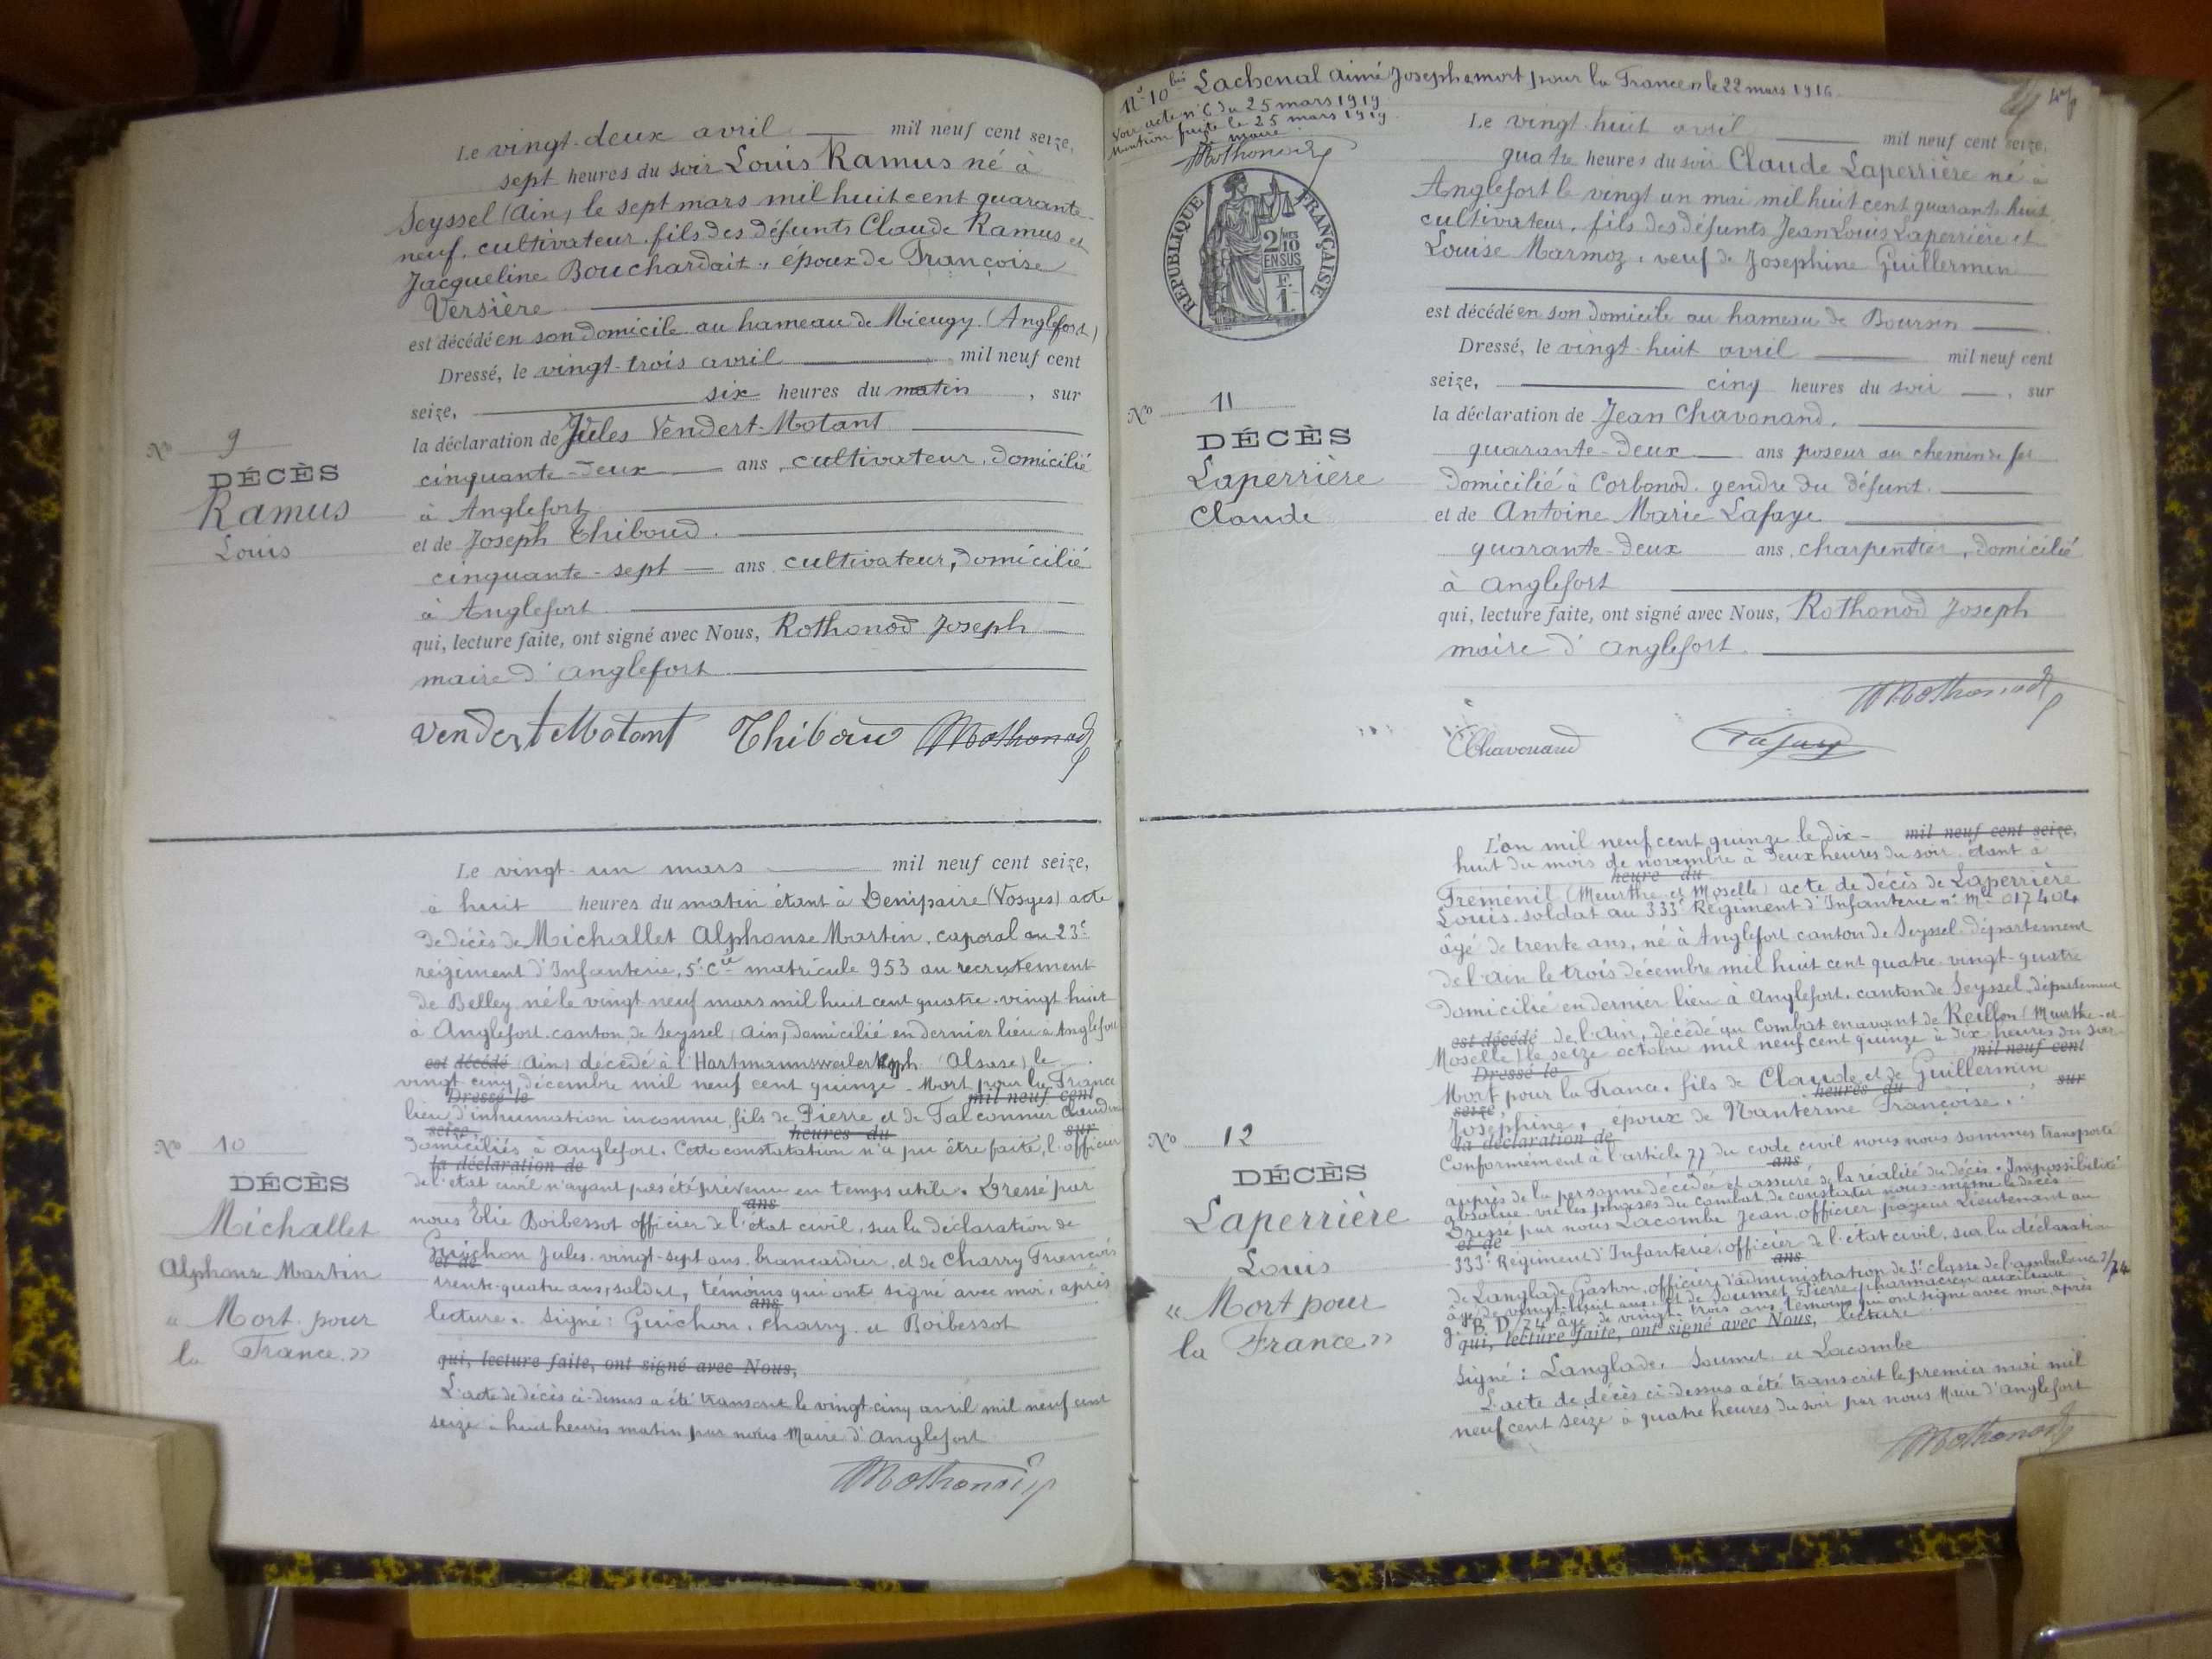 Le vingt-deux avril mil neuf cent seize,
sept heures du soir Louis Ramus né à
Seyssel (Ain) le sept mars mil huit cent quarante-
neuf, cultivateur, fils des défunts Claude Ramus et
Jacqueline Bouchardait, époux de Françoise
Versière
est décédé en son domicile au hameau de Mieugy (Anglefort)
Dressé, le vingt-trois avril mil neuf cent
seize, six heures du matin, sur
la déclaration de Jules Vendert-Motant
cinquante-deux ans, cultivateur, domicilié
à Anglefort
et de Joseph Thiboud.
cinquante-sept ans cultivateur, domicilié
à Anglefort.
qui, lecture faite, ont signé avec Nous, Rothonod Joseph
maire d'Anglefort
No 9
DÉCÈS
Ramus
Louis
Vendert Motant Thiboud Rothonod
Le vingt-un mars mil neuf cent seize,
à huit heures du matin étant à Denipaire (Vosges) acte
de décès de Michallet Alphonse Martin, caporal au 23e
régiment d'Infanterie, 5e Cie matricule 953 au recrutement
de Belley, né le vingt-neuf mars mil huit cent quatre-vingt-huit
à Anglefort canton de Seyssel (Ain) domicilié en dernier lieu à Anglefort
est décédé (Ain) décédé à l'Hartmannsweilerkoph (Alsace) le
vingt cinq décembre mil neuf cent quinze. Mort pour la France
Dressé le mil neuf cent
lieu d'inhumation inconnu, fils de Pierre et de Falconnier Claudine
seize, heures du sur
domiciliés à Anglefort. Cette constatation n'a pu être faite, l'officier
la déclaration de
de l'état civil n'ayant pas été prévenu en temps utile. Dressé par
ans
nous Elie Boibessot officier de l'état civil, sur la déclaration de
Guichon Jules, vingt-sept ans, brancardier, et de Charry François
et de
trente-quatre ans, soldat, témoins qui ont signé avec moi, après
ans
lecture. Signé: Guichon, Charry et Boibessot
qui, lecture faite, ont signé avec Nous,
L'acte de décès ci-dessus a été transcrit le vingt-cinq avril mil neuf cent
seize à huit heures matin par nous Maire d'Anglefort
Rothonod
No 10
DÉCÈS
Michallet
Alphonse Martin
« Mort pour
la France »
No 10 bis Lachenal Aimé Joseph mort pour la France le 22 mars 1916
Voir acte n° 6 du 25 mars 1919
Mention faite le 25 mars 1919
Le maire
Rothonod
RÉPUBLIQUE FRANÇAISE
2 MES 10
EN SUS
F.
1
Le vingt-huit avril mil neuf cent seize,
quatre heures du soir Claude Laperrière né à
Anglefort le vingt un mai mil huit cent quarante huit,
cultivateur, fils des défunts Jean Louis Laperrière et
Louise Marmoz, veuf de Josephine Guillermin
est décédé en son domicile au hameau de Boursin
Dressé, le vingt-huit avril mil neuf cent
seize, cinq heures du soir, sur
la déclaration de Jean Chavonand,
quarante-deux ans poseur au chemin de fer
domicilié à Corbonod, gendre du défunt.
et de Antoine Marie Lafaye
quarante-deux ans, charpentier, domicilié
à Anglefort
qui, lecture faite, ont signé avec Nous, Rothonod Joseph
maire d'Anglefort.
Rothonod
Chavonand Lafaye
No 11
DÉCÈS
Laperrière
Claude
L'an mil neuf cent quinze le dix- mil neuf cent seize,
huit du mois de novembre à deux heures du soir étant à
heure du
Fréménil (Meurthe et Moselle) acte de décès de Laperrière
Louis soldat au 333e Régiment d'Infanterie n° Mle 017404
âgé de trente ans, né à Anglefort canton de Seyssel département
de l'Ain le trois décembre mil huit cent quatre-vingt-quatre
domicilié en dernier lieu à Anglefort, canton de Seyssel, département
est décédé de l'Ain, décédé au Combat en avant de Reillon (Meurthe-et-
Moselle) le seize octobre mil neuf cent quinze à dix heures du soir
Dressé le mil neuf cent
Mort pour la France, fils de Claude et de Guillermin
seize, heures du sur
Josephine, époux de Nanterme Françoise.
la déclaration de
Conformément à l'article 77 du code civil nous nous sommes transporté
ans
auprès de la personne décédée et assuré de la réalité du décès. Impossibilité
absolue vu les phases du combat de constater nous-même le décès
Dressé par nous Lacombe Jean, officier payeur Lieutenant au
et de
333e Régiment d'Infanterie, officier de l'état civil, sur la déclaration
ans
de Langlade Gaston, officier d'administration de 3e classe de l'ambulance 2/74
âgé de vingt-huit ans, et de Soumet Pierre pharmacien auxiliaire
g. B. D/74 âgé de vingt-trois ans, témoins qui ont signé avec moi après
qui, lecture faite, ont signé avec Nous, lecture
Signé: Langlade, Soumet et Lacombe
L'acte de décès ci-dessus a été transcrit le premier mai mil
neuf cent seize à quatre heures du soir par nous Maire d'Anglefort
Rothonod
No 12
DÉCÈS
Laperrière
Louis
« Mort pour
la France »